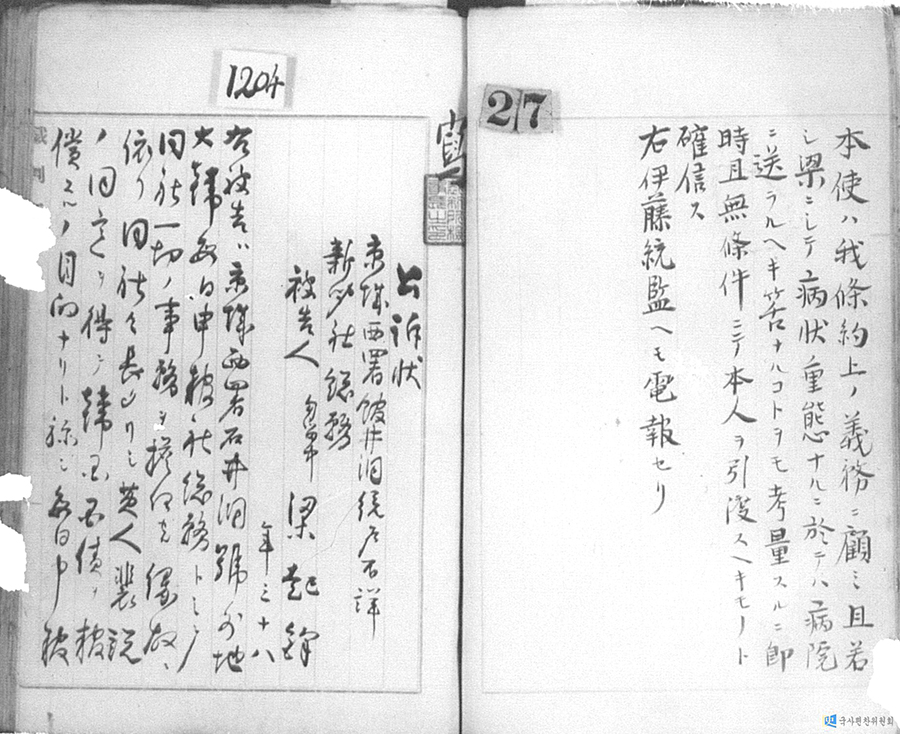 27
本使ハ我條約上ノ義務ニ顧ミ且若
シ梁ニシテ病状重態ナルニ於テハ病院
ニ送ラルヘキ筈ナルコトヲモ考量スルニ即
時且無條件ニテ本人ヲ引渡スヘキモノト
確信ス
右伊藤統監ヘモ電報セリ
1204
寫
公訴状
京城西署盤井洞統戸不詳
新聞社総務
被告人
梁起鐸
年三十八
右被告ハ京城西署石井洞號外地
大韓毎日申報社総務トシテ
同社一切ノ事務ヲ擔任セ縁故ニ
依リ同社々長ナリシ英人裴説
ノ同意ヲ得テ韓国国債ヲ報
償スルノ目的ナリト称シ毎日申報
国史편찬위원회